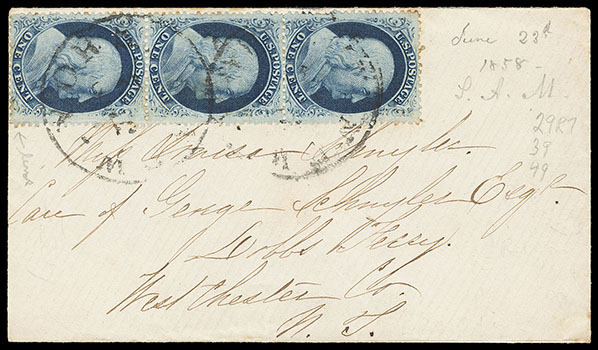 U.S. POSTAGE. U.S. POSTAGE. U.S. POSTAGE.
ONE CENT. ONE CENT. ONE CENT.
June 23d
1858 -
S. A. M.
2987
39
49
Miss Schuyler
Care of George Schuyler Esqr.
Dobbs Ferry.
West Chester Co.
N. Y.